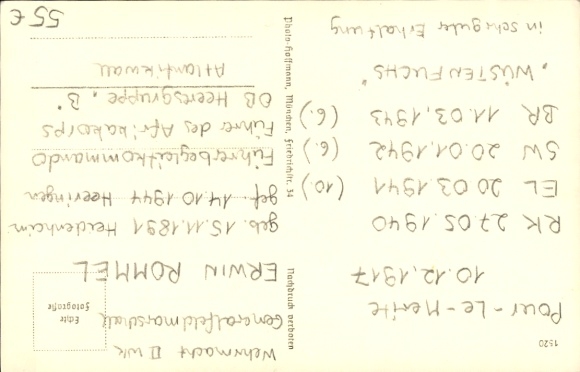 1520
Pour-Le-Merite
10.12.1917
RK 27.05.1940
EL 20.03.1941 (10.)
SW 20.01.1942 (6.)
BR 11.03.1943 (6.)
"WÜSTENFUCHS"
in sehr guter Erhaltung
Nachdruck verboten
Photo-Hoffmann, München, Friedrichstr. 34
Wehrmacht II WK
Generalfeldmarschall
Echte
Fotografie
ERWIN ROMMEL
geb. 15.11.1891 Heidenheim
gef. 14.10.1944 Heeringen
Führerbegleitkommando
Führer des Afrikakorps
OB Heeresgruppe „B"
Atlantikwall
55 €